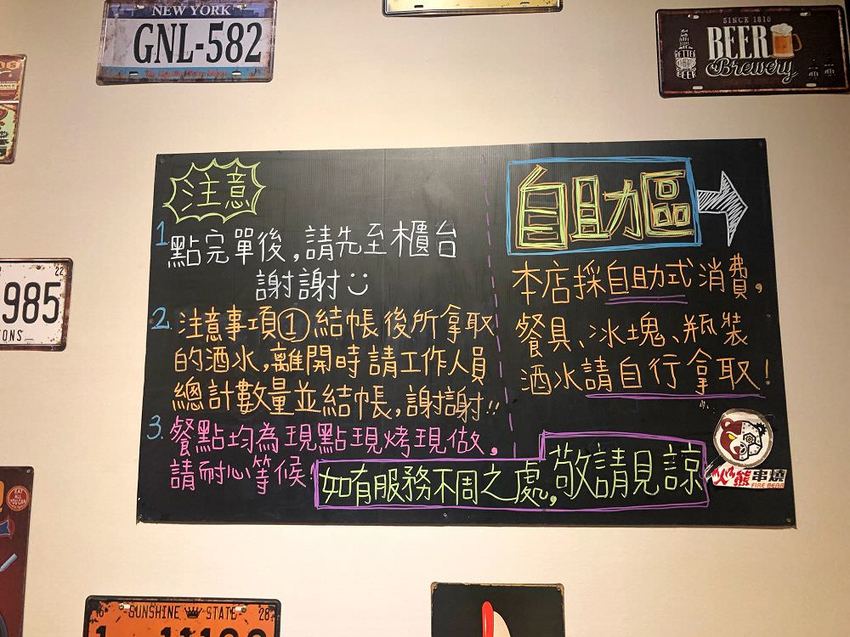 NEW YORK
GNL-582
SINCE 1810
BEER
Brewery
BETTER
BEER
985
注意
1.點完單後,請先至櫃台
謝謝
2.注意事項①結帳後所拿取
的酒水,離開時請工作人員
總計數量並結帳,謝謝!!
3.餐點均為現點現烤現做,
請耐心等候!
自助區
本店採自助式消費,
餐具、冰塊、瓶裝
酒水請自行拿取!
如有服務不周之處,敬請見諒
火熊串燒
FIRE BEAR
SUNSHINE STATE